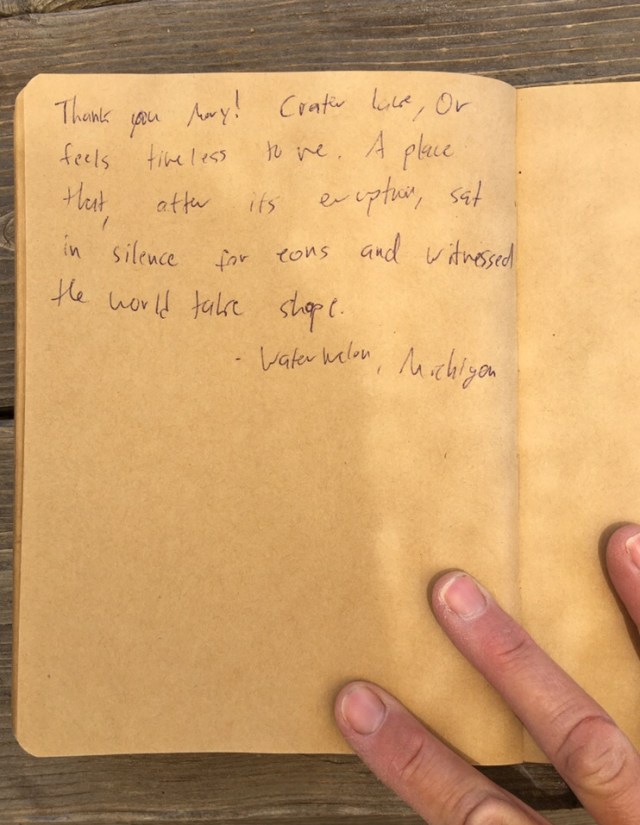 Thank you Mary! Crater Lake, Or
feels timeless to me. A place
that, after its eruption, sat
in silence for eons and witnessed
the world take shape.
- Watermelon, Michigan